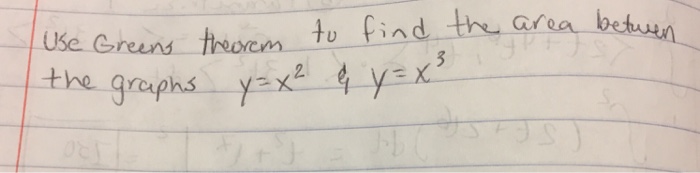 Use Greens theorem to find the area between
the graphs y=x² & y=x³